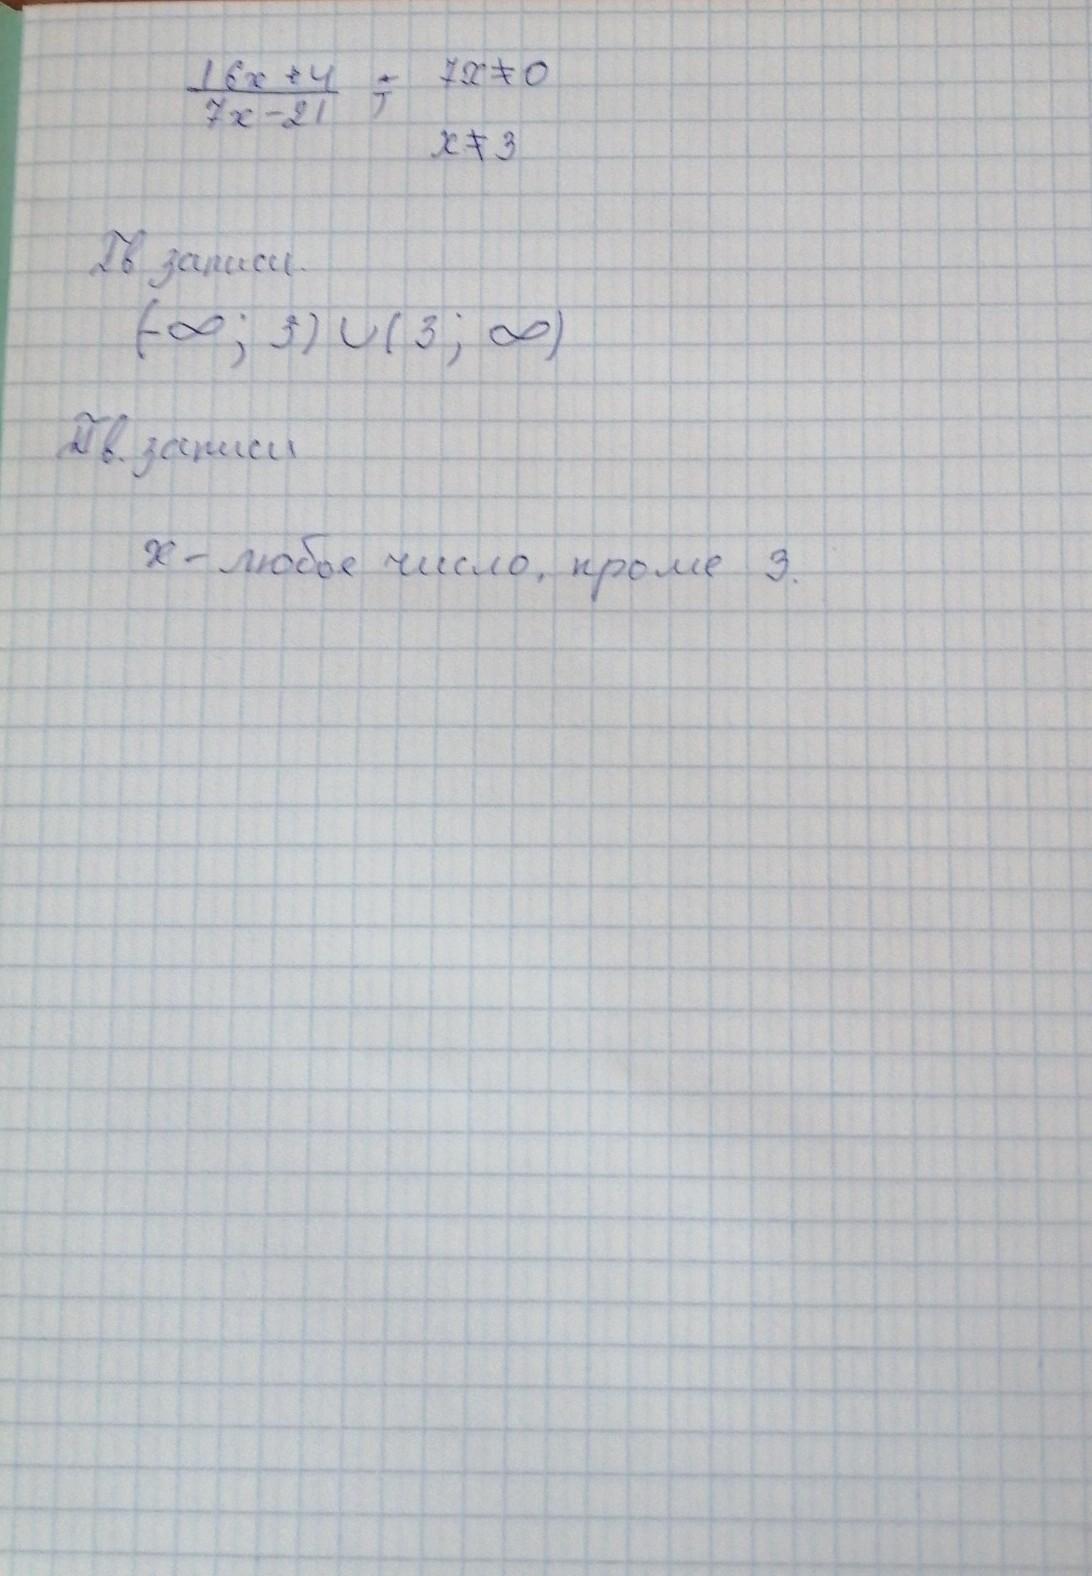 16x+4
7x-21 ; 7x≠0
x≠3
I в записи.
(-∞; 3)∪(3; ∞)
II в. записи
x - любое число, кроме 3.